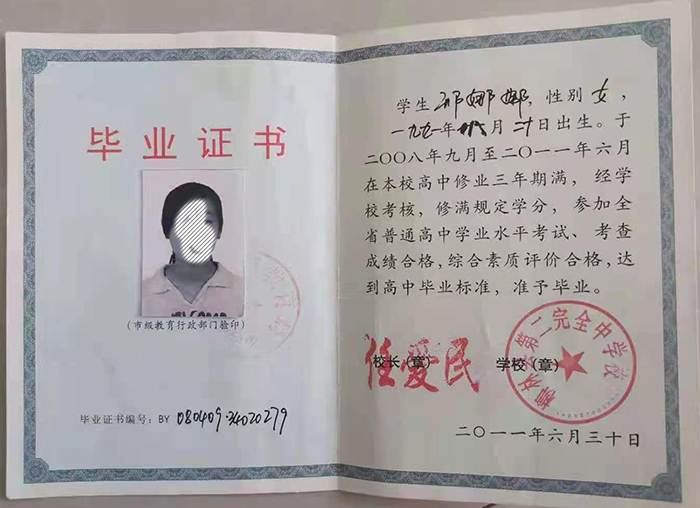 毕业证书
(市级教育行政部门验印)
毕业证书编号:BY 080409·34020279
学生 邢娜娜,性别 女,
一九九一年 八月 二十日出生。于
二〇〇八年九月至二〇一一年六月
在本校高中修业三年期满,经学
校考核,修满规定学分,参加全
省普通高中学业水平考试、考查
成绩合格,综合素质评价合格,达
到高中毕业标准,准予毕业。
校长(章)
任爱民
学校(章)
柳林县第二完全中学校
二〇一一年六月三十日